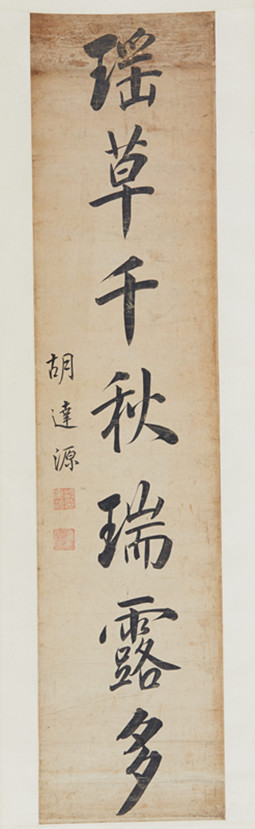 瑶草千秋瑞露多
胡達源